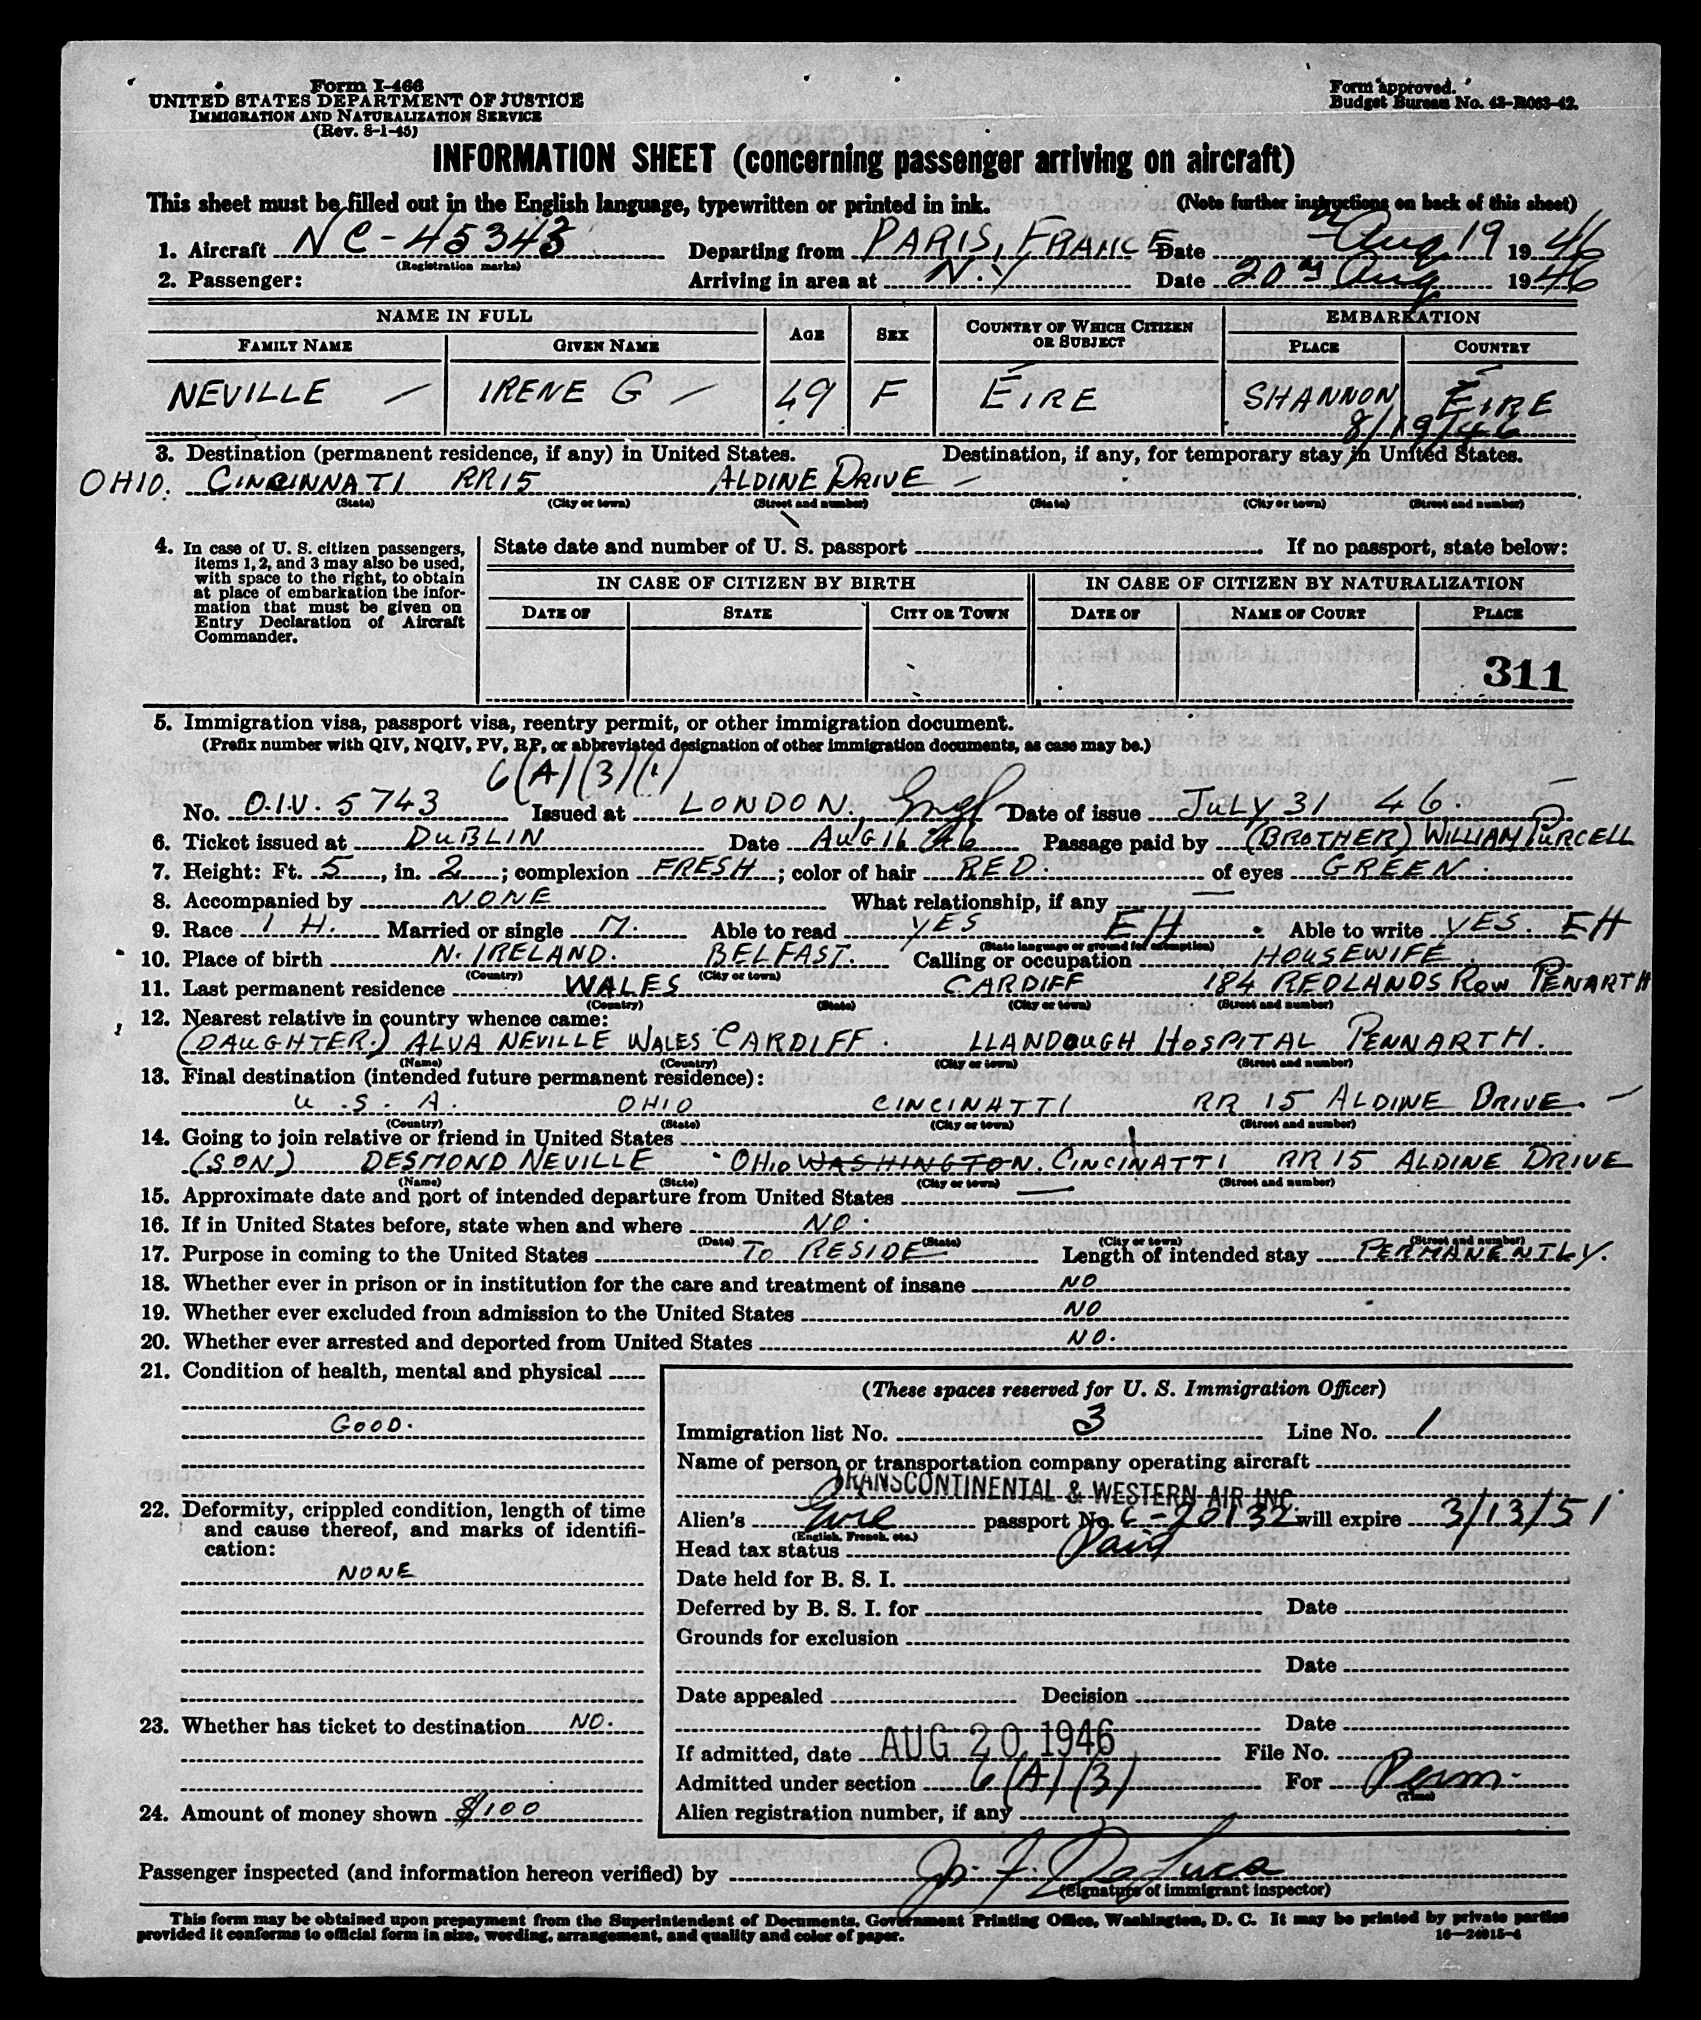 Form I-466
UNITED STATES DEPARTMENT OF JUSTICE
IMMIGRATION AND NATURALIZATION SERVICE
(Rev. 8-1-45)
Form approved.
Budget Bureau No. 43-R063-42.
INFORMATION SHEET (concerning passenger arriving on aircraft)
This sheet must be filled out in the English language, typewritten or printed in ink. (Note further instructions on back of this sheet)
1. Aircraft NC-45343 Departing from PARIS, FRANCE Date Aug 19 1946
(Registration marks)
2. Passenger: Arriving in area at N.Y Date 20 Aug 1946
NAME IN FULL AGE SEX COUNTRY OF WHICH CITIZEN OR SUBJECT EMBARKATION
FAMILY NAME GIVEN NAME PLACE COUNTRY
NEVILLE — IRENE G — 49 F ÉIRE SHANNON ÉIRE
8/19/46
3. Destination (permanent residence, if any) in United States. Destination, if any, for temporary stay in United States.
OHIO. CINCINNATI RR15 ALDINE DRIVE —
(State) (City or town) (Street and number) (State) (City or town) (Street and number)
4. In case of U. S. citizen passengers, items 1, 2, and 3 may also be used, with space to the right, to obtain at place of embarkation the information that must be given on Entry Declaration of Aircraft Commander.
State date and number of U. S. passport If no passport, state below:
IN CASE OF CITIZEN BY BIRTH IN CASE OF CITIZEN BY NATURALIZATION
DATE OF STATE CITY OR TOWN DATE OF NAME OF COURT PLACE
311
5. Immigration visa, passport visa, reentry permit, or other immigration document.
(Prefix number with QIV, NQIV, PV, RP, or abbreviated designation of other immigration documents, as case may be.)
6(A)(3)(1)
No. O.I.V. 5743 Issued at LONDON, Engl Date of issue JULY 31 46.
6. Ticket issued at DUBLIN Date AUG 16 46 Passage paid by (BROTHER) WILLIAM PURCELL
7. Height: Ft. 5, in. 2; complexion FRESH; color of hair RED. of eyes GREEN.
8. Accompanied by NONE What relationship, if any —
9. Race I H. Married or single M. Able to read YES EH. Able to write YES. EH
(State language or ground for exemption)
10. Place of birth N. IRELAND. BELFAST. Calling or occupation HOUSEWIFE.
(Country) (City or town)
11. Last permanent residence WALES CARDIFF 184 REDLANDS ROW PENARTH
(Country) (State) (City or town) (Street and number)
12. Nearest relative in country whence came:
(DAUGHTER.) ALVA NEVILLE WALES CARDIFF. LLANDOUGH HOSPITAL PENNARTH.
(Name) (Country) (City or town) (Street and number)
13. Final destination (intended future permanent residence):
U.S.A. OHIO CINCINATTI RR 15 ALDINE DRIVE. —
(Country) (State) (City or town) (Street and number)
14. Going to join relative or friend in United States
(SON) DESMOND NEVILLE OHIO WASHINGTON. CINCINATTI RR 15 ALDINE DRIVE
(Name) (State) (City or town) (Street and number)
15. Approximate date and port of intended departure from United States —
16. If in United States before, state when and where NO.
(Date) (State) (City or town) (Street and number)
17. Purpose in coming to the United States TO RESIDE Length of intended stay PERMANENTLY.
18. Whether ever in prison or in institution for the care and treatment of insane NO
19. Whether ever excluded from admission to the United States NO
20. Whether ever arrested and deported from United States NO.
21. Condition of health, mental and physical
GOOD.
22. Deformity, crippled condition, length of time and cause thereof, and marks of identification:
NONE
23. Whether has ticket to destination NO.
24. Amount of money shown $100
(These spaces reserved for U. S. Immigration Officer)
Immigration list No. 3 Line No. 1
Name of person or transportation company operating aircraft
TRANSCONTINENTAL & WESTERN AIR INC.
Alien's Eire passport No. C-20132 will expire 3/13/51
(English, French, etc.)
Head tax status Paid
Date held for B. S. I.
Deferred by B. S. I. for Date
Grounds for exclusion
Date
Date appealed Decision
Date
If admitted, date AUG 20 1946 File No.
Admitted under section 6(A)(3) For Perm.
(Time)
Alien registration number, if any
Passenger inspected (and information hereon verified) by Jos. F. DeLuca
(Signature of immigrant inspector)
This form may be obtained upon prepayment from the Superintendent of Documents, Government Printing Office, Washington, D. C. It may be printed by private parties
provided it conforms to official form in size, wording, arrangement, and quality and color of paper. 16—24915-4